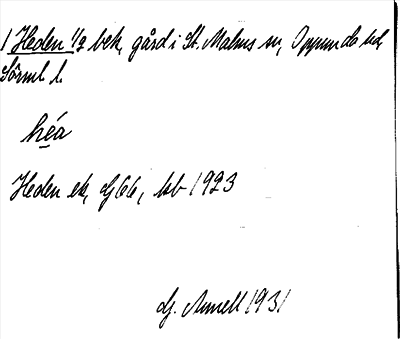 1 Heden 1/2 bek, gård i St. Malms sn, Oppunda hd,
Sörml l.
héa
Heden ek, GJ66, kb 1923
G. Annell 1931